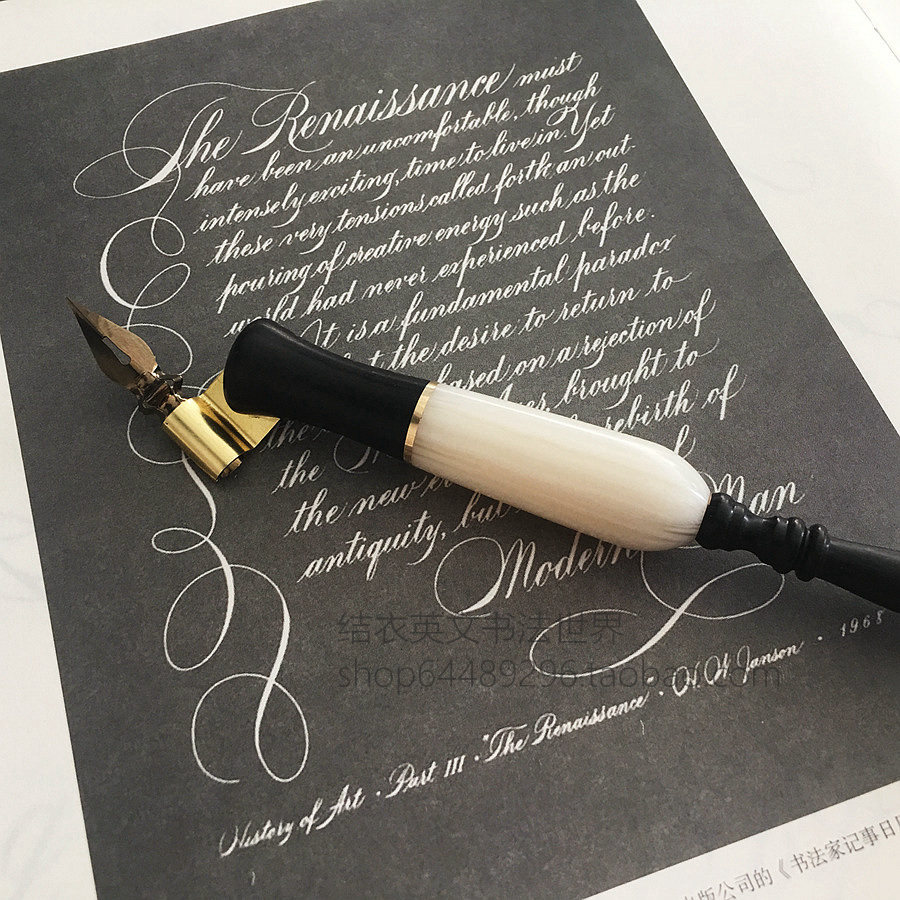 The Renaissance must
have been an uncomfortable, though
intensely exciting, time to live in. Yet
these very tensions called forth an out-
pouring of creative energy such as the
world had never experienced before.
It is a fundamental paradox
the desire to return to
based on a rejection of
brought to
the rebirth of
the
the new
antiquity, but
Modern Man
结衣英文书法世界
shop64489296.taobao.com
History of Art • Part III • "The Renaissance" • H. W. Janson • 1968
出版公司的《书法家记事日